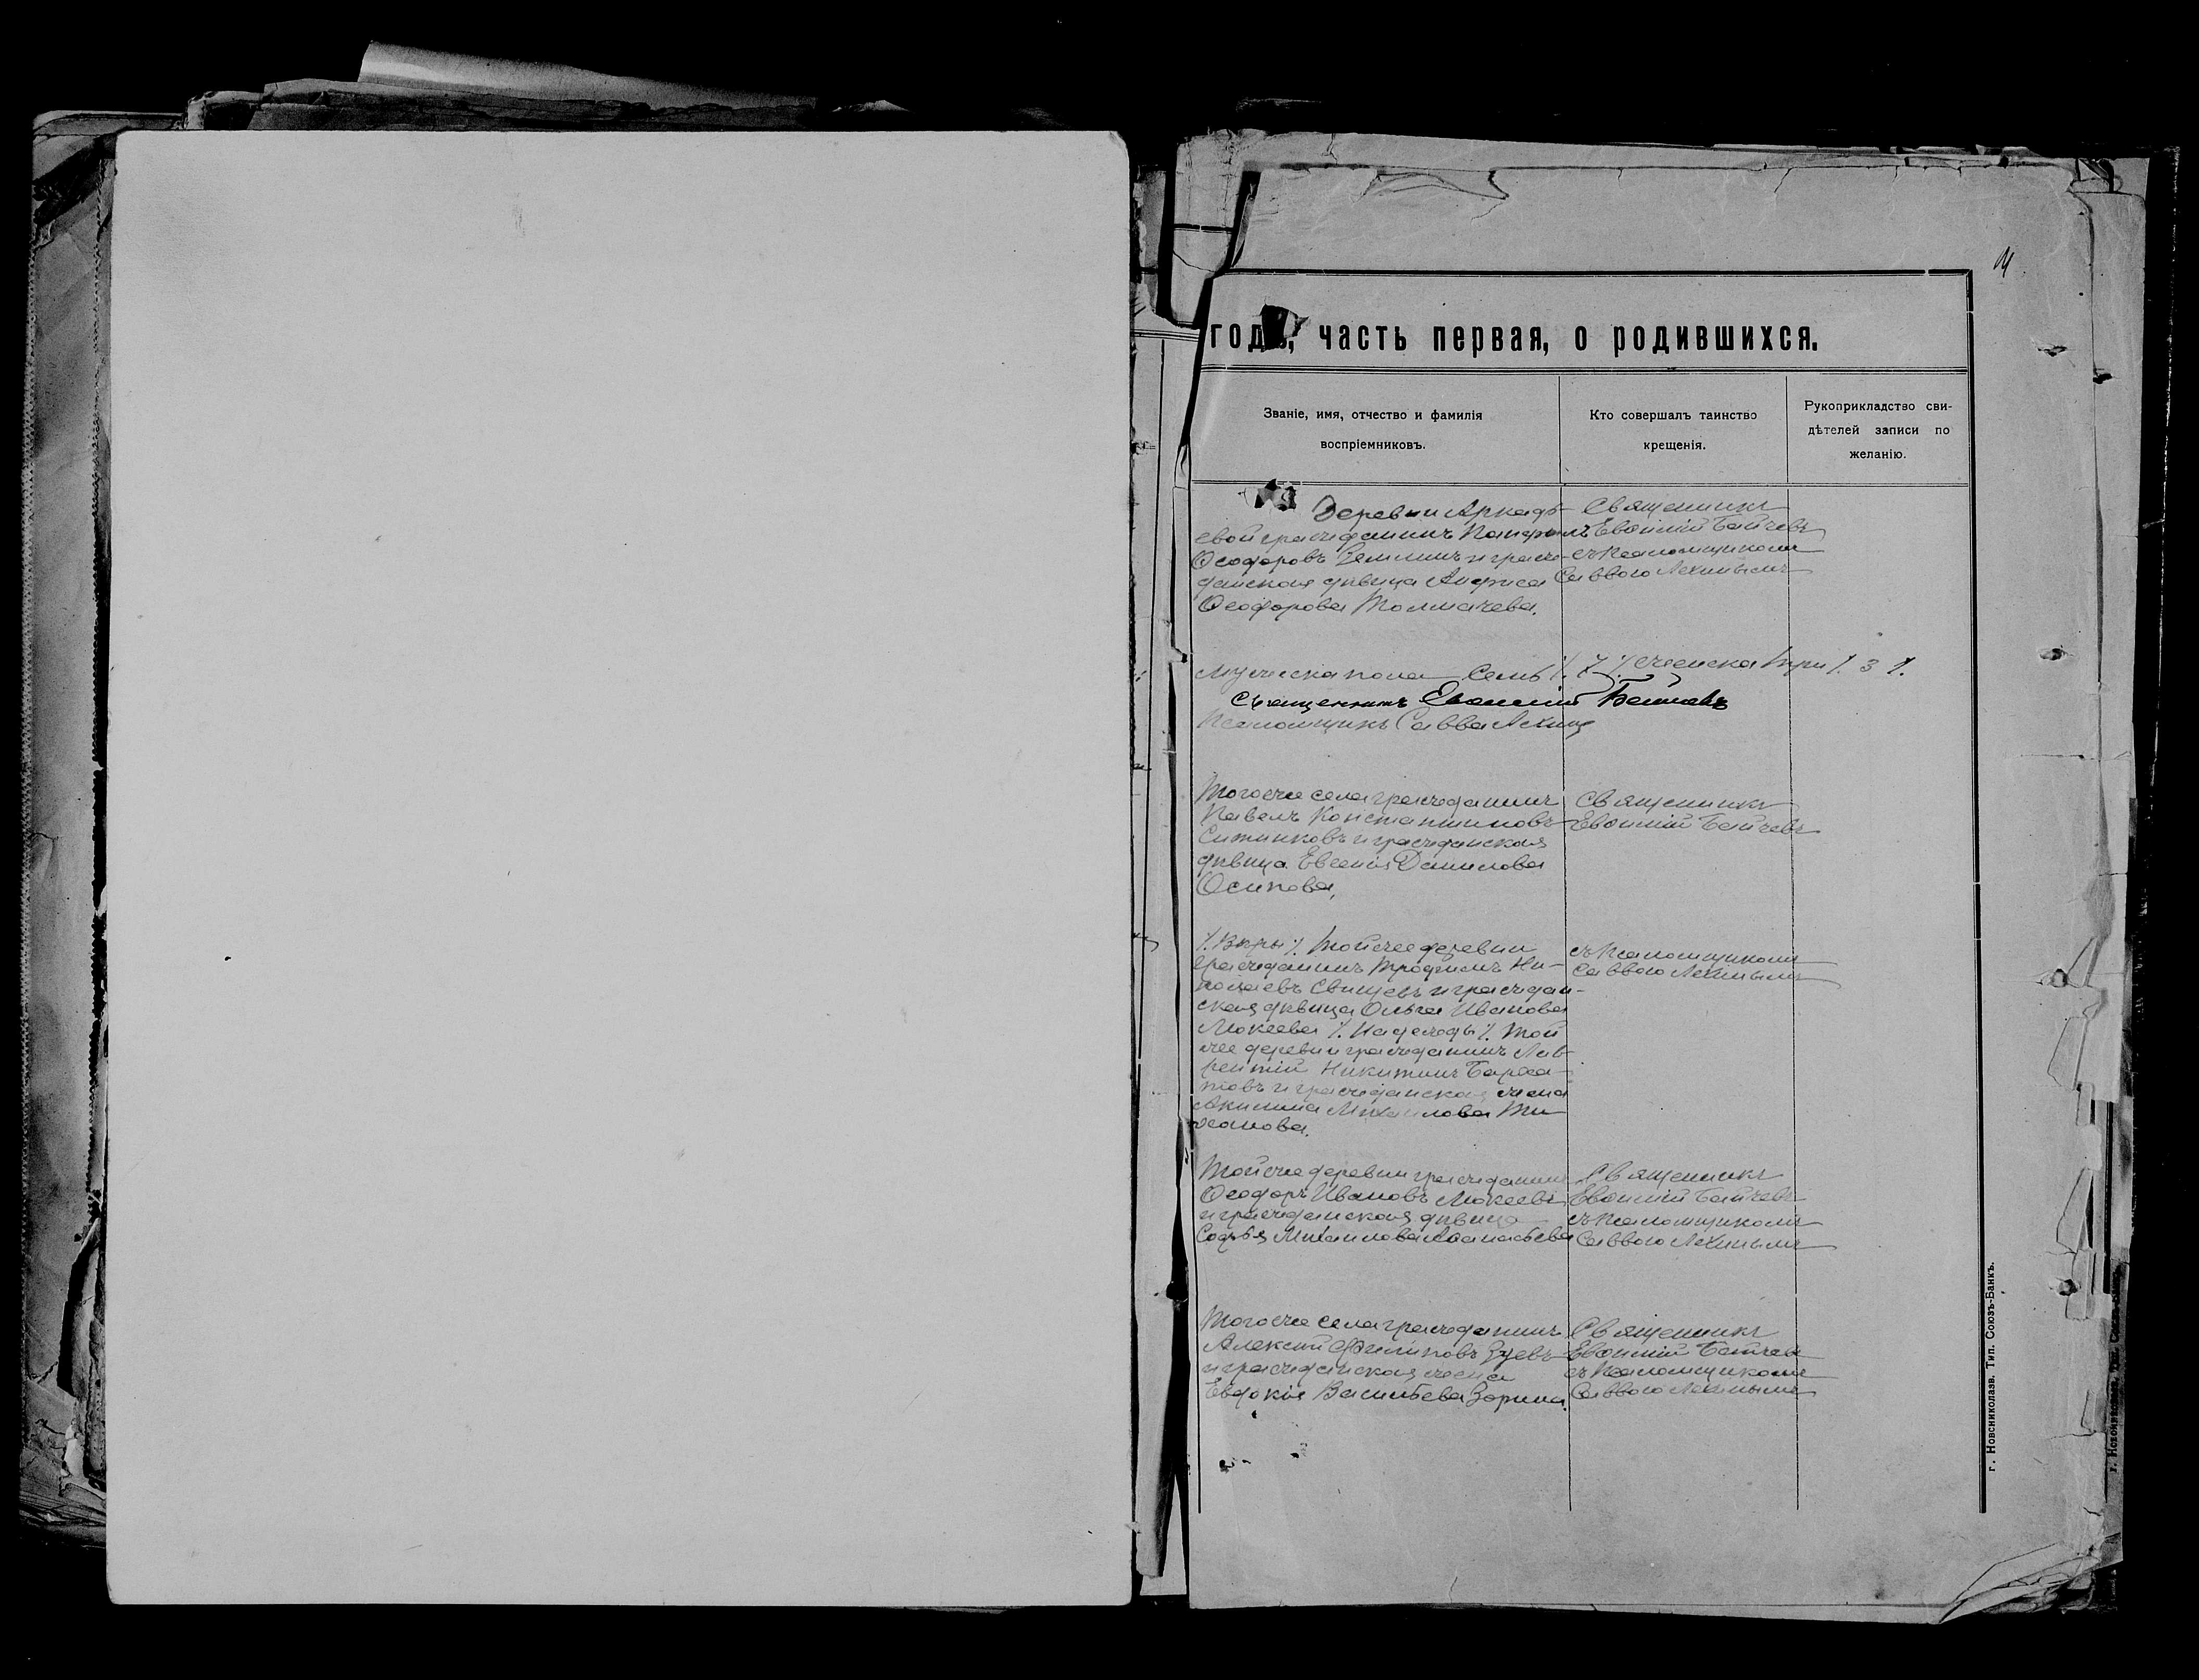 годъ, часть первая, о родившихся.
Званіе, имя, отчество и фамилія
воспріемниковъ.
Кто совершалъ таинство
крещенія.
Рукоприкладство сви-
дѣтелей записи по
желанію.
Деревни Аркадь-
евой гражданинъ
Ѳеодоровъ Земинъ и граж-
данская дѣвица Анфиса
Ѳеодорова Толмачева.
Священникъ
Евѳимій Байчевъ
съ псаломщикомъ
Саввою Лехинымъ
Мужеска пола Семь /. 7 /. женска три /. 3 /.
Священникъ Евѳимій Байчевъ
Псаломщикъ Савва Лехинъ
Того же села гражданинъ
Павелъ Константиновъ
Ситниковъ и гражданская
дѣвица Евгенія Данилова
Осипова.
Священникъ
Евѳимій Байчевъ
/. Вѣры /. Той же деревни
гражданинъ Трофимъ Ни-
колаевъ Свищевъ и граждан-
ская дѣвица Ольга Иванова
Мокеева /. Надежды /. Той
же деревни гражданинъ Лав-
рентій Никитинъ Барха-
товъ и гражданская жена
Акилина Михаилова Ти-
ханова.
съ псаломщикомъ
Саввою Лехинымъ
Той же деревни гражданинъ
Ѳеодоръ Ивановъ Мокеевъ
и гражданская дѣвица
Софья Михаилова Аѳанасьева
Священникъ
Евѳимій Байчевъ
съ псаломщикомъ
Саввою Лехинымъ
Того же села гражданинъ
Алексій Филиповъ Зуевъ
и гражданская жена
Евдокія Васильева Зорина.
Священникъ
Евѳимій Байчевъ
съ псаломщикомъ
Саввою Лехинымъ
г. Новониколаев. Тип. Союзъ-Банкъ.